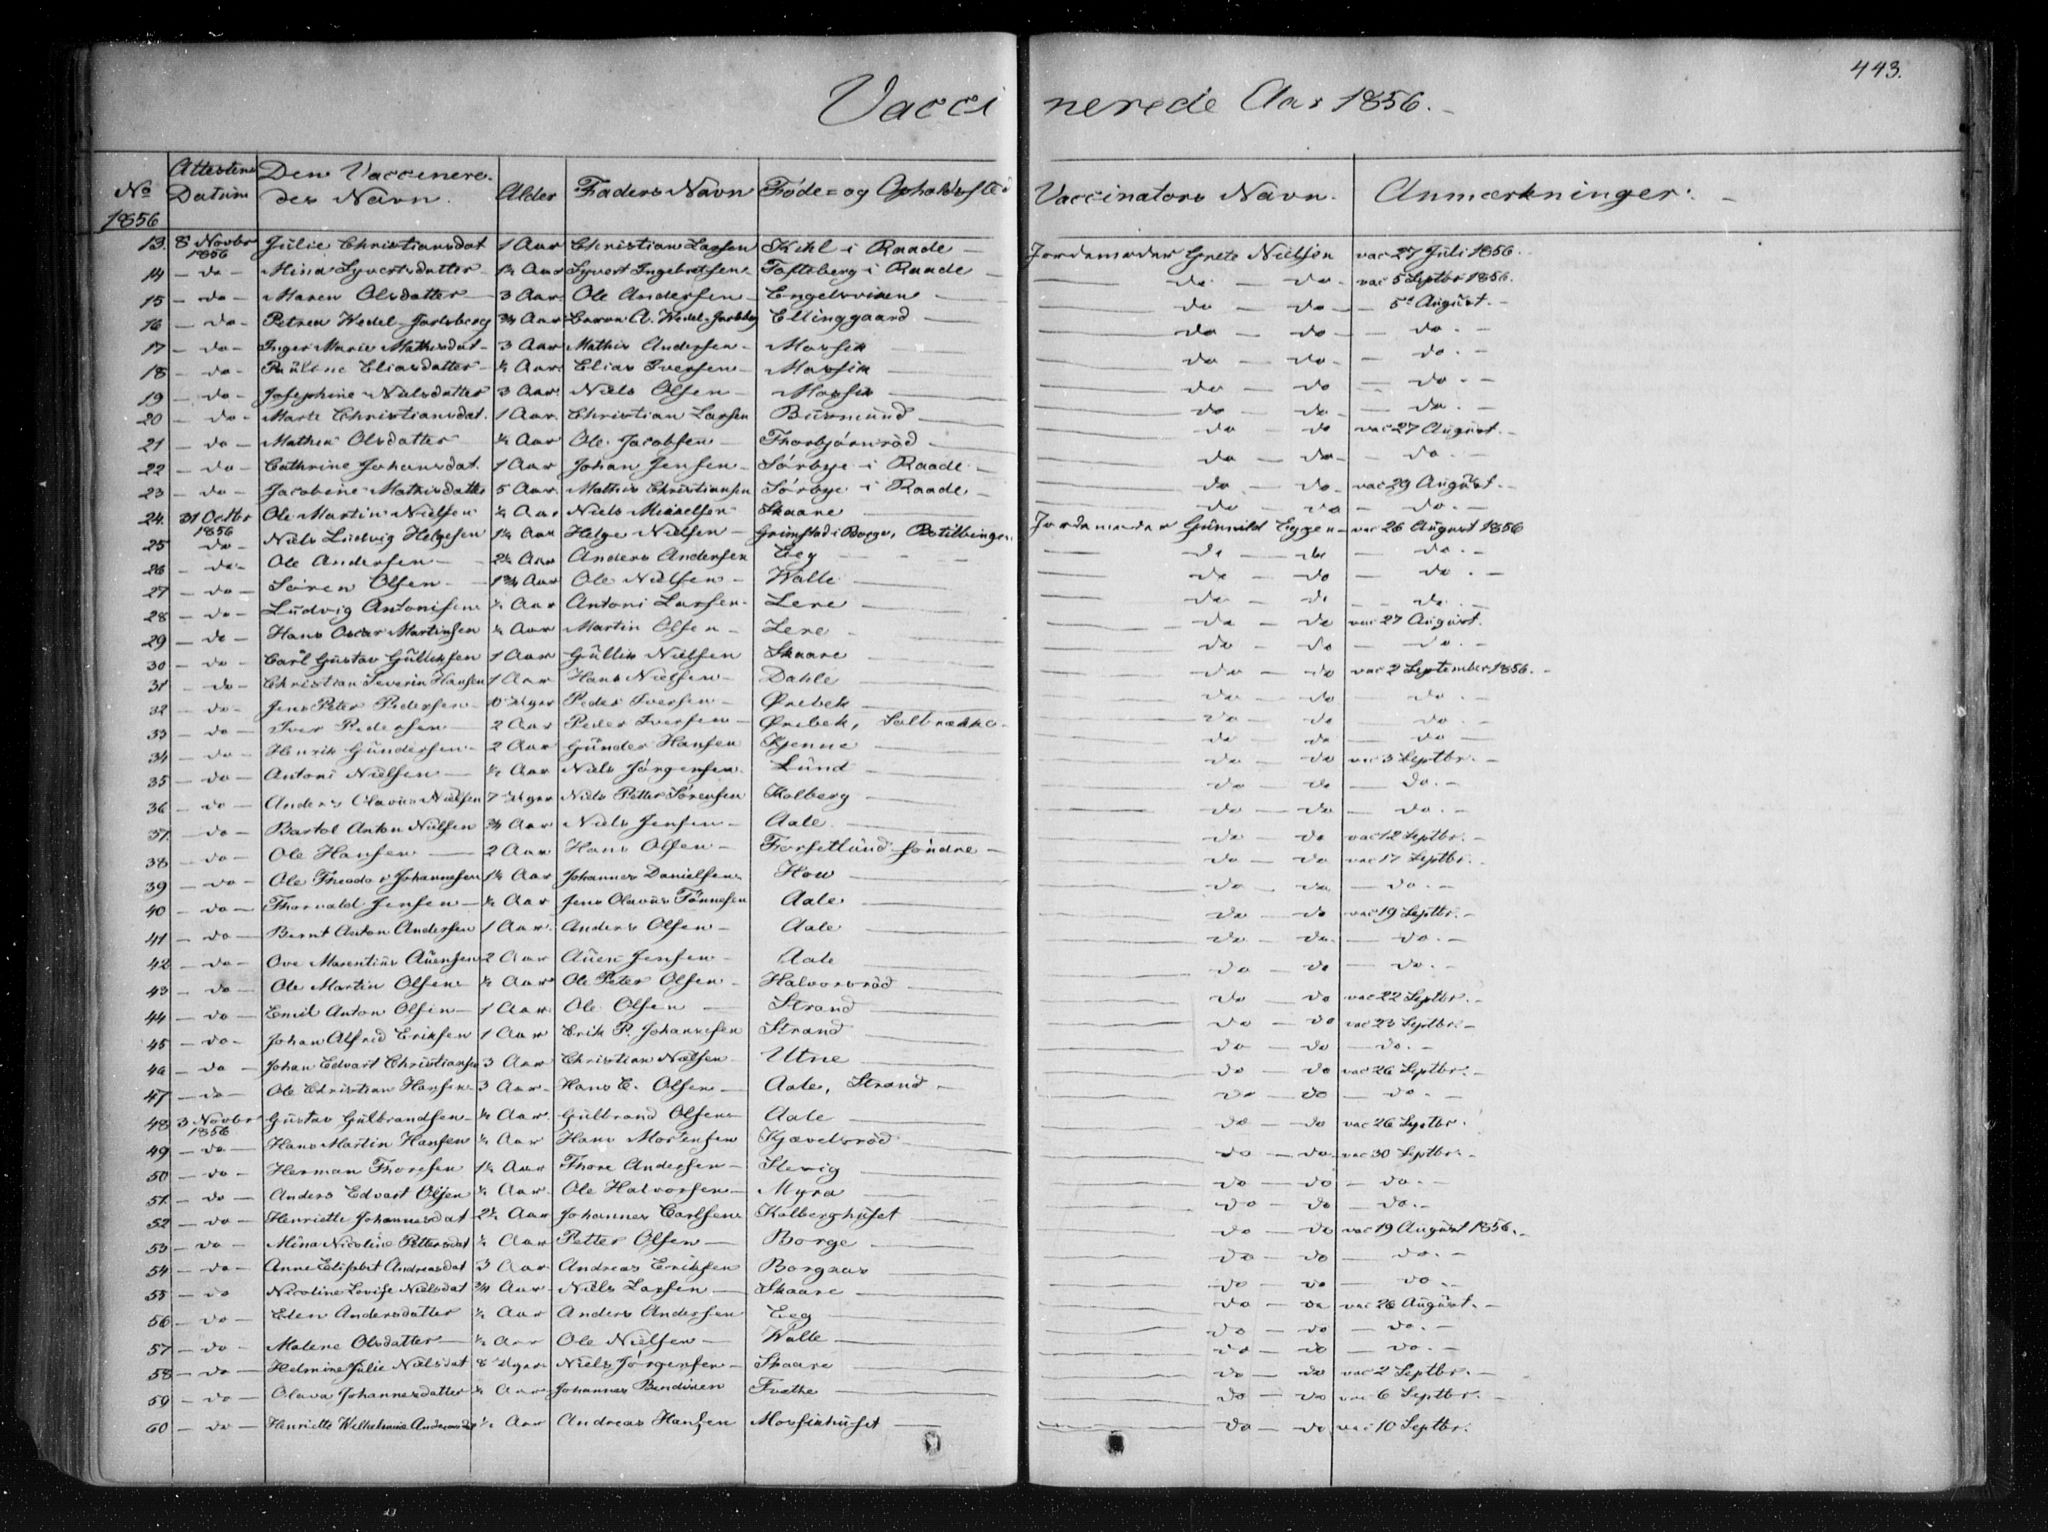 443.
Vaccinerede Aar 1856.
No 1856 | Attestens Datum | Den Vaccinere- des Navn. | Alder | Faders Navn | Föde- og Opholdsted | Vaccinators Navn. | Anmærkninger:
13. | 8 Novbr 1856 | Julie Christiansdat | 1 Aar | Christian Larsen | Kihl i Raade | Jordemoder Grete Nielsen | vac 27 Juli 1856.
14 | do | Mina Syvertsdatter | 1½ Aar | Syvert Ingebretsen | Tofteberg i Raade | do do | vac 5 Septbr 1856.
15 | do | Maren Olsdatter | 3 Aar | Ole Andersen | Engelsviken | do do | 5t August.
16 | do | Petrea Wedel-Jarlsberg | ¾ Aar | Baron A. Wedel-Jarlsbg | Ellinggaard | do do | do.
17 | do | Inger Marie Mathisdat | 3 Aar | Mathis Andersen | Mossik | do do | do.
18 | do | Pauline Eliasdatter | ½ Aar | Elias Iversen | Mossik | do do | do.
19 | do | Josephine Nielsdatter | 3 Aar | Niels Olsen | Mossik | do do | do.
20 | do | Marte Christiansdat. | 1 Aar | Christian Larsen | Burmund | do do | vac 27 August.
21 | do | Mathea Olsdatter | ½ Aar | Ole Jacobsen | Thorbjörnröd | do do | do.
22 | do | Cathrine Johansdat. | 1 Aar | Johan Jensen | Sörbye i Raade | do do | vac 29 August.
23 | do | Jacobine Mathisdatter | 5 Aar | Mathis Christiansen | Sörbye i Raade | do do | do.
24. | 31 Octbr 1856 | Ole Martin Nielsen | ½ Aar | Niels Mikkelsen | Skaare | Jordemoder Gunnild Eggen | vac 26 August 1856
25 | do | Niels Ludvig Helgesen | 1½ Aar | Helge Nielsen | Grimstad i Borge, | do do | do.
26 | do | Ole Andersen | 2½ Aar | Anders Andersen | Eeg | do do | do.
27 | do | Sören Olsen | 1¾ Aar | Ole Nielsen | Walle | do do | do.
28 | do | Ludvig Antonisen | ½ Aar | Antoni Larsen | Lere | do do | vac 27 August.
29 | do | Hans Oscar Martinsen | ½ Aar | Martin Olsen | Lere | do do | do.
30 | do | Carl Gustav Gulliksen | 1 Aar | Gullik Nielsen | Skaare | do do | vac 2 September 1856.
31 | do | Christian Severin Hansen | 1 Aar | Hans Nielsen | Dahle | do do | do.
32 | do | Jens Peter Pedersen | 10 Uger | Peder Iversen | Ørebek | do do | do.
33 | do | Iver Pedersen | 2 Aar | Peder Iversen | Ørebek, Saltrække | do do | do
34 | do | Henrik Gundersen | 2 Aar | Gunder Hansen | Kjenne | do do | vac 3 Septbr.
35 | do | Antoni Nielsen | ½ Aar | Niels Jörgensen | Lund | do do | do.
36 | do | Anders Olavus Nielsen | 7 Uger | Niels Petter Sörensen | Kolberg | do do | do.
37. | do | Bartol Anton Nielsen | ¾ Aar | Niels Jensen | Aale | do do | vac 12 Septbr.
38 | do | Ole Hansen | 2 Aar | Hans Olsen | Forsetlund söndre | do do | vac 17 Septbr.
39 | do | Ole Theodor Johannesen | 1½ Aar | Johannes Danielsen | How | do do | do.
40 | do | Thorvald Jensen | ½ Aar | Jens Olavus Tönnesen | Aale | do do | vac 19 Septbr.
41 | do | Bernt Anton Andersen | 1 Aar | Anders Olsen | Aale | do do | do.
42 | do | Ove Marentius Auensen | 2 Aar | Auen Jensen | Aale | do do | do.
43 | do | Ole Martin Olsen | ½ Aar | Ole Peter Olsen | Halvorsröd | do do | vac 22 Septbr.
44 | do | Emil Anton Olsen | 1 Aar | Ole Olsen | Strand | do do | vac 23 Septbr.
45 | do | Johan Alfred Eriksen | 1 Aar | Erik P. Johannesen | Strand | do do | do.
46 | do | Johan Edvart Christiansen | 3 Aar | Christian Nielsen | Utne | do do | vac 26 Septbr.
47 | do | Ole Christian Hansen | 3 Aar | Hans E. Olsen | Aale, Strand | do do | do.
48 | 3 Novbr 1856 | Gustav Gulbrandsen | ½ Aar | Gulbrand Olsen | Aale | do do | vac 26 Septbr.
49 | do | Hans Martin Hansen | ½ Aar | Hans Mortensen | Kjævelsröd | do do | vac 30 Septbr.
50 | do | Herman Thoresen | 1½ Aar | Thore Andersen | Slevig | do do | do.
51 | do | Anders Edvart Olsen | ½ Aar | Ole Halvorsen | Myra | do do | do.
52 | do | Henriette Johannesdat | 2½ Aar | Johannes Carlsen | Kolberghuset | do do | vac 19 August 1856.
53 | do | Mina Nicoline Pettersdat | ½ Aar | Petter Olsen | Borge | do do | do.
54 | do | Anne Elisabet Andreasdat | 3 Aar | Andreas Eriksen | Borgaas | do do | do.
55 | do | Nicoline Lovise Nielsdat | ¾ Aar | Niels Larsen | Skaare | do do | vac 26 August.
56 | do | Elen Andersdatter | ½ Aar | Anders Andersen | Eeg | do do | do.
57 | do | Malene Olsdatter | ½ Aar | Ole Nielsen | Walle | do do | do.
58 | do | Helmine Julie Nielsdat | 8 Uger | Niels Jörgensen | Skaare | do do | vac 2 Septbr.
59 | do | Olava Johannesdatter | ½ Aar | Johannes Bendixen | Frethe | do do | vac 6 Septbr.
60 | do | Henriette Wilhelmine Andreasdat | ½ Aar | Andreas Hansen | Mossikhuset | do do | vac 10 Septbr.